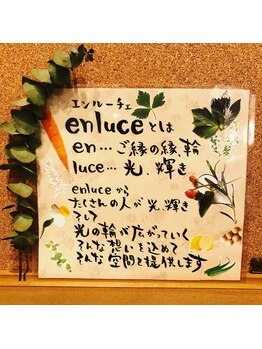 エンルーチェ
enluceとは
en…ご縁の縁、輪
luce…光、輝き
enluceから
たくさんの人が光、輝き
そして
光の輪が広がっていく
そんな想いを込めて
そんな空間を提供します